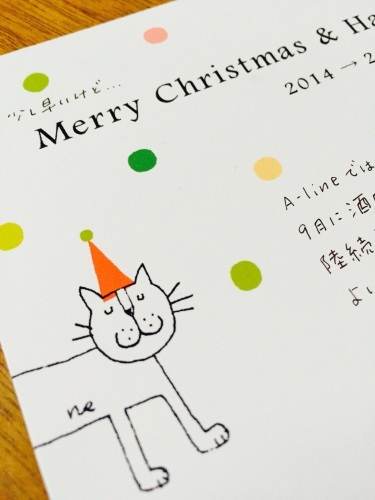 少し早いけど…
Merry Christmas & Ha
2014 → 2
A-lineでは
9月に酒
陸続
よい
ne